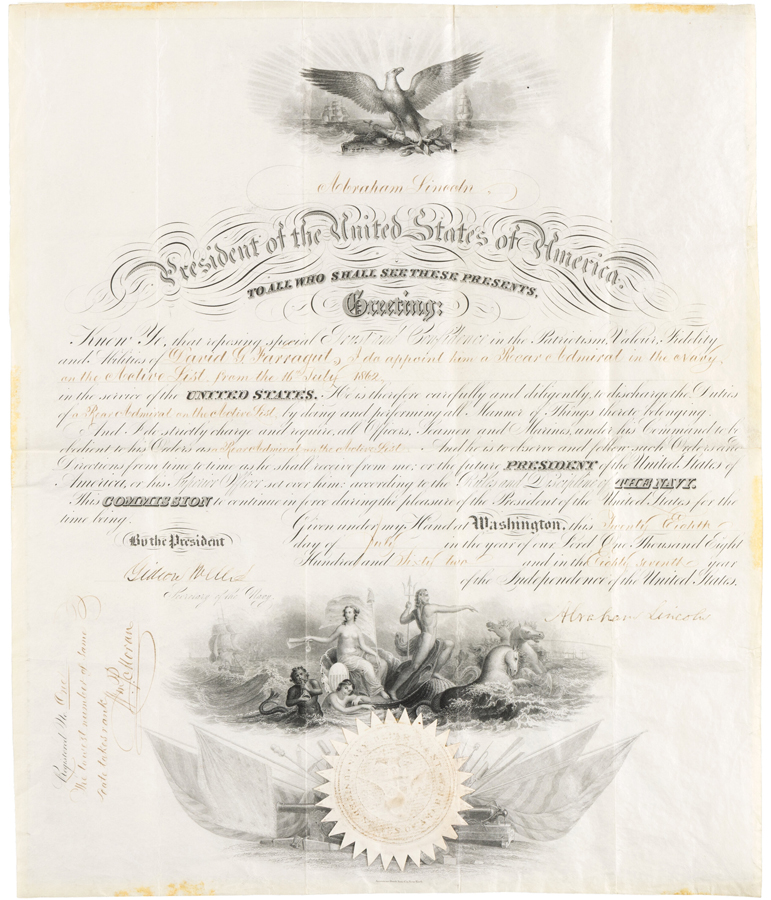 Abraham Lincoln.
President of the United States of America.
TO ALL WHO SHALL SEE THESE PRESENTS,
Greeting:
Know Ye, that reposing special Trust and Confidence in the Patriotism, Valour, Fidelity
and Abilities of David G. Farragut, I do appoint him a Rear Admiral in the Navy
on the Active List, from the 16th July 1862
in the service of the UNITED STATES. He is therefore carefully and diligently, to discharge the Duties
of a Rear Admiral on the Active List, by doing and performing all Manner of Things thereto belonging.
And I do strictly charge and require, all Officers, Seamen and Marines, under his Command to be
obedient to his Orders as Rear Admiral on the Active List. And he is to observe and follow such Orders and
Directions from time to time as he shall receive from me; or the future PRESIDENT of the United States of
America, or his Superior Officer set over him: according to the Rules and Discipline of THE NAVY.
This COMMISSION to continue in force during the pleasure of the President of the United States for the
time being.
Given under my Hand at Washington, this Twenty Eighth
By the President
day of July in the year of our Lord One Thousand Eight
Hundred and Sixty two and in the Eighty seventh year
of the Independence of the United States.
Gideon Welles
Secretary of the Navy
Abraham Lincoln
Registered No. One
The lowest number of same
date takes rank.
Wm P Moran